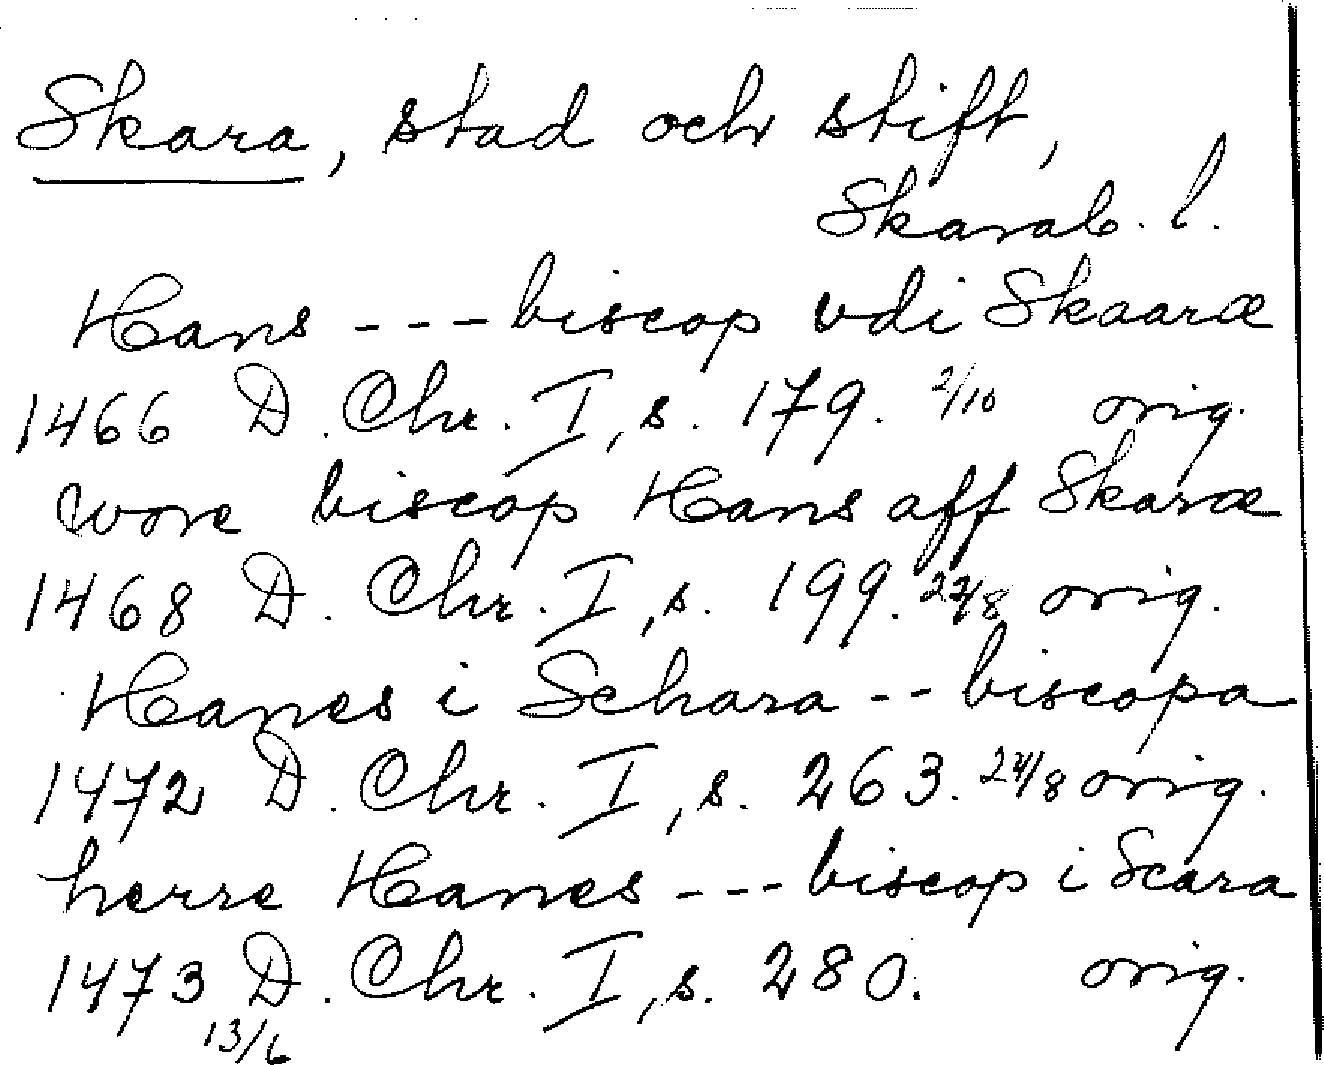 Skara, stad och stift,
Skarab. l.
Hans --- biscop vdi Skaaræ
1466 D. Chr. I, s. 179. 2/10 orig.
wore biscop Hans aff Skaræ
1468 D. Chr. I, s. 199. 22/8 orig.
Hanes i Schara -- biscopa
1472 D. Chr. I, s. 263. 24/8 orig.
herre Hanes --- biscop i Scara
1473 D. Chr. I, s. 280. orig.
13/6